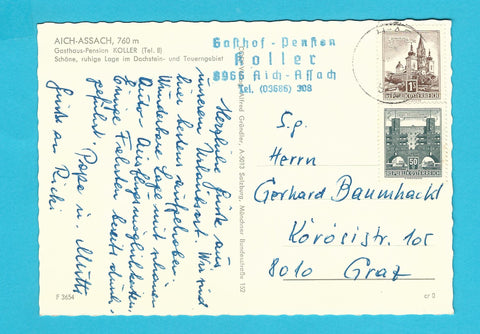 AICH-ASSACH, 760 m
Gasthaus-Pension KOLLER (Tel. 8)
Schöne, ruhige Lage im Dachstein- und Tauerngebiet
Gasthof - Pension
Koller
8966 Aich-Assach
Tel. (03686) 308
REPUBLIK ÖSTERREICH
50
REPUBLIK ÖSTERREICH
Herzliche Grüße aus
unserem Urlaubsort. Wir sind
hier bestens aufgehoben.
Wunderbare Lage mit schönen
Auto-Ausflugsmöglichkeiten.
Einige Fahrten bereits durch-
geführt. Papa u. Mutti
Grüße an Ricki
Alfred Gründler, A-5013 Salzburg, Münchner Bundesstraße 152
S.p.
Herrn
Gerhard Baumhackl
Körösistr. 105
8010 Graz
F 3654
cr 2